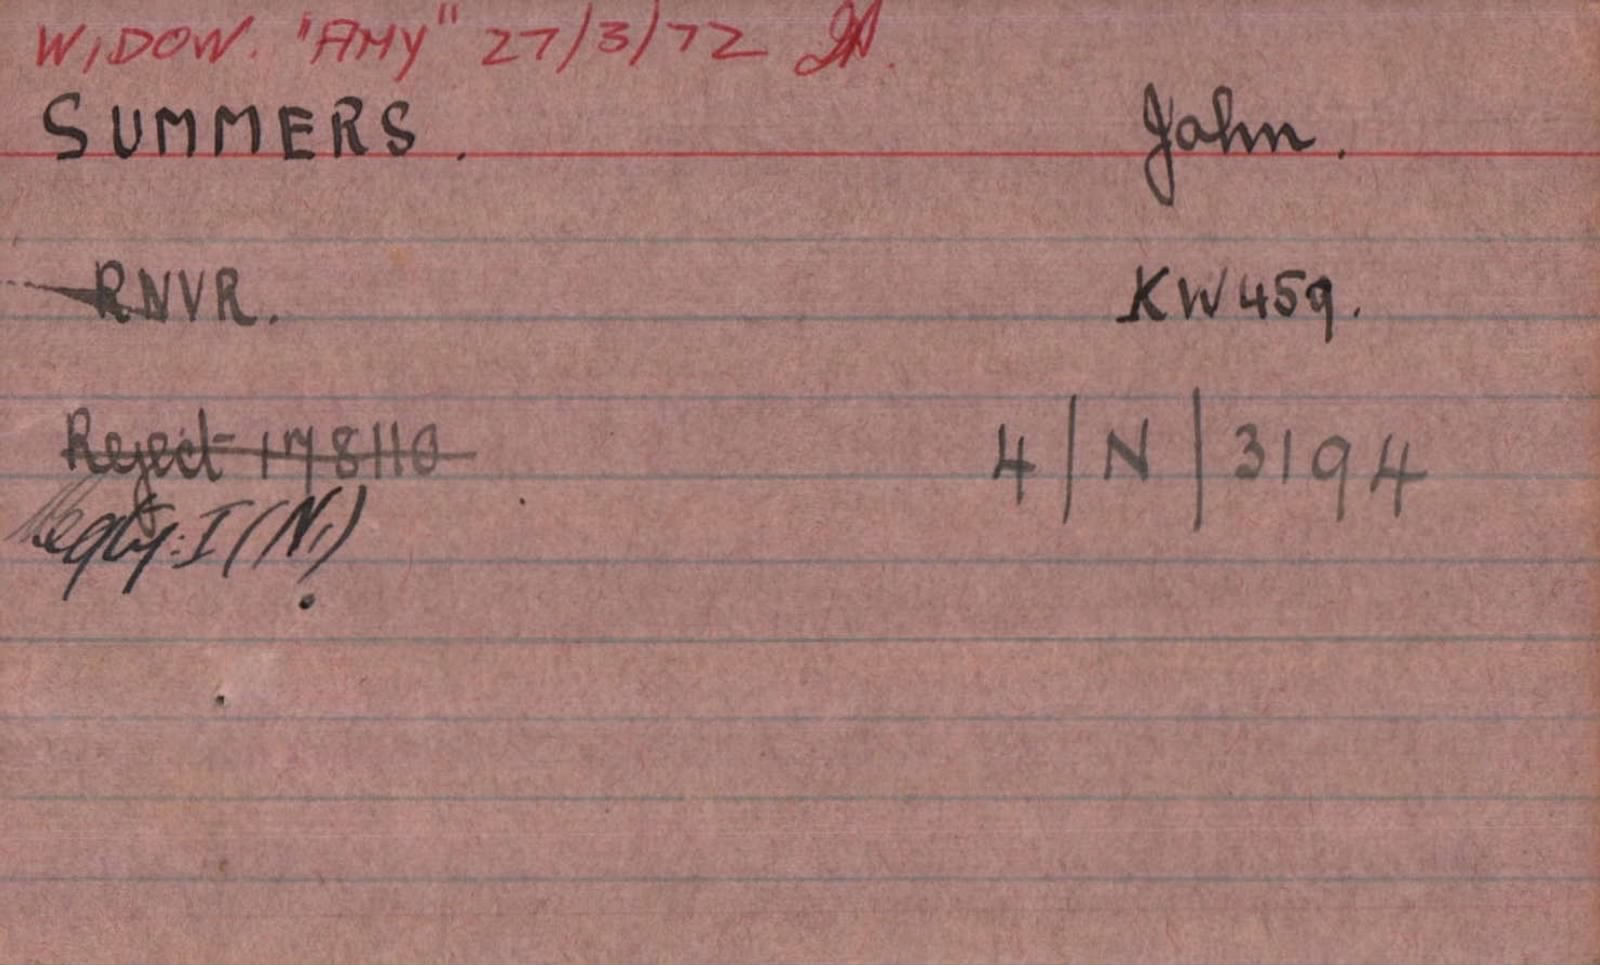 WIDOW. "AMY" 27/3/72
SUMMERS. John.
RNVR. KW459.
Reject 178110 4/N/3194
I (N.)